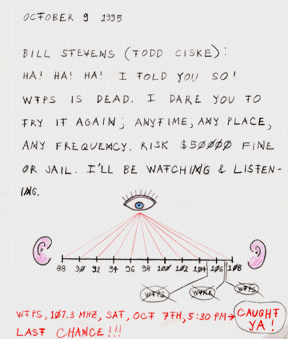 OCTOBER 9 1995
BILL STEVENS (TODD CISKE):
HA! HA! HA! I TOLD YOU SO!
WTPS IS DEAD. I DARE YOU TO
TRY IT AGAIN; ANYTIME, ANY PLACE,
ANY FREQUENCY. RISK $50000 FINE
OR JAIL. I'LL BE WATCHING & LISTEN-
ING.
88 90 92 94 96 98 100 102 104 106 108
WTPS WTPS
WTPS, 107.3 MHZ, SAT, OCT 7TH, 5:30 PM→ CAUGHT
YA!
LAST CHANCE!!!